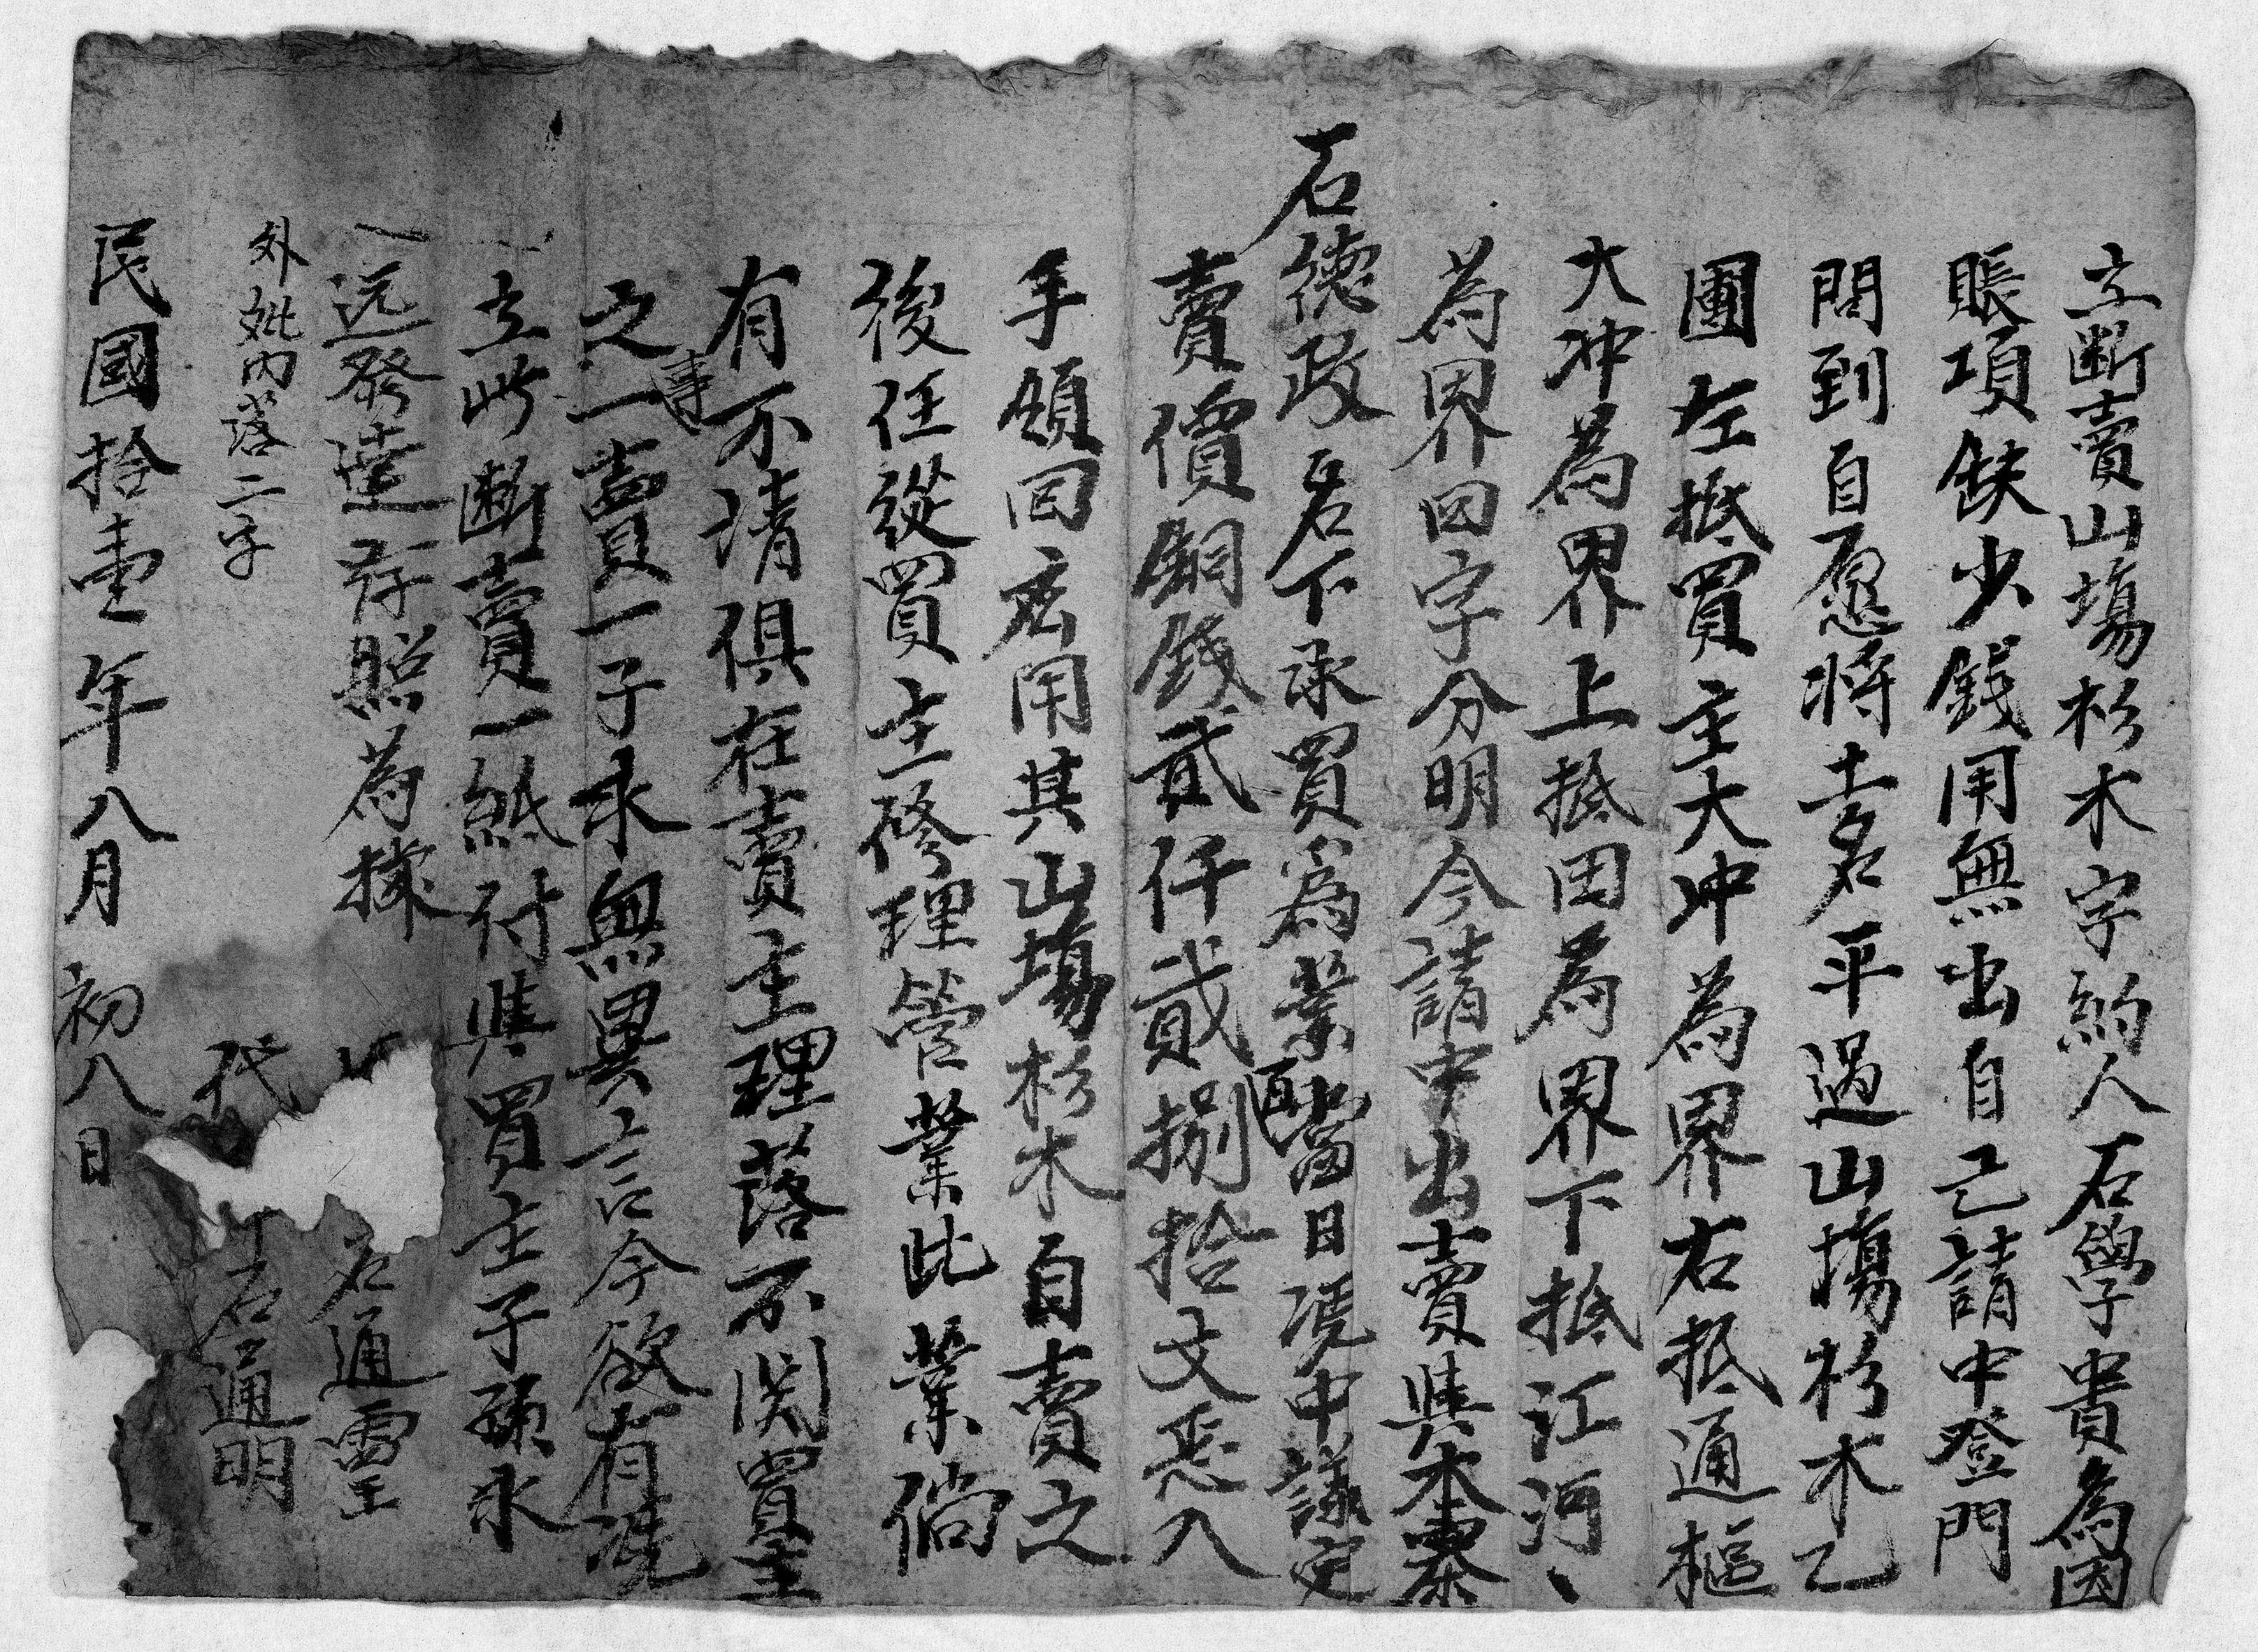 立断賣山塲杉木字約人石學貴為因
賬項缺少錢用無出自己請中登門
問到自愿將土名平過山塲杉木乙
團左抵買主大冲為界右抵通樞
大冲為界上抵田為界下抵江河、
為界四字分明今請中出賣與本寨
石德政名下承買為業當日凴中議定
賣價銅錢貳仟貳捌拾文悉入
手領回應用其山塲杉木自賣之
後任從買主修理管業此業倘
有不清俱在賣主理落不関買主
之事一賣一子永無異言今欲有凴
立此断賣一紙付與買主子孫永
远發達存照為據
外妣內落二字
石通雲
代
石通明
民國拾壹年八月初八日